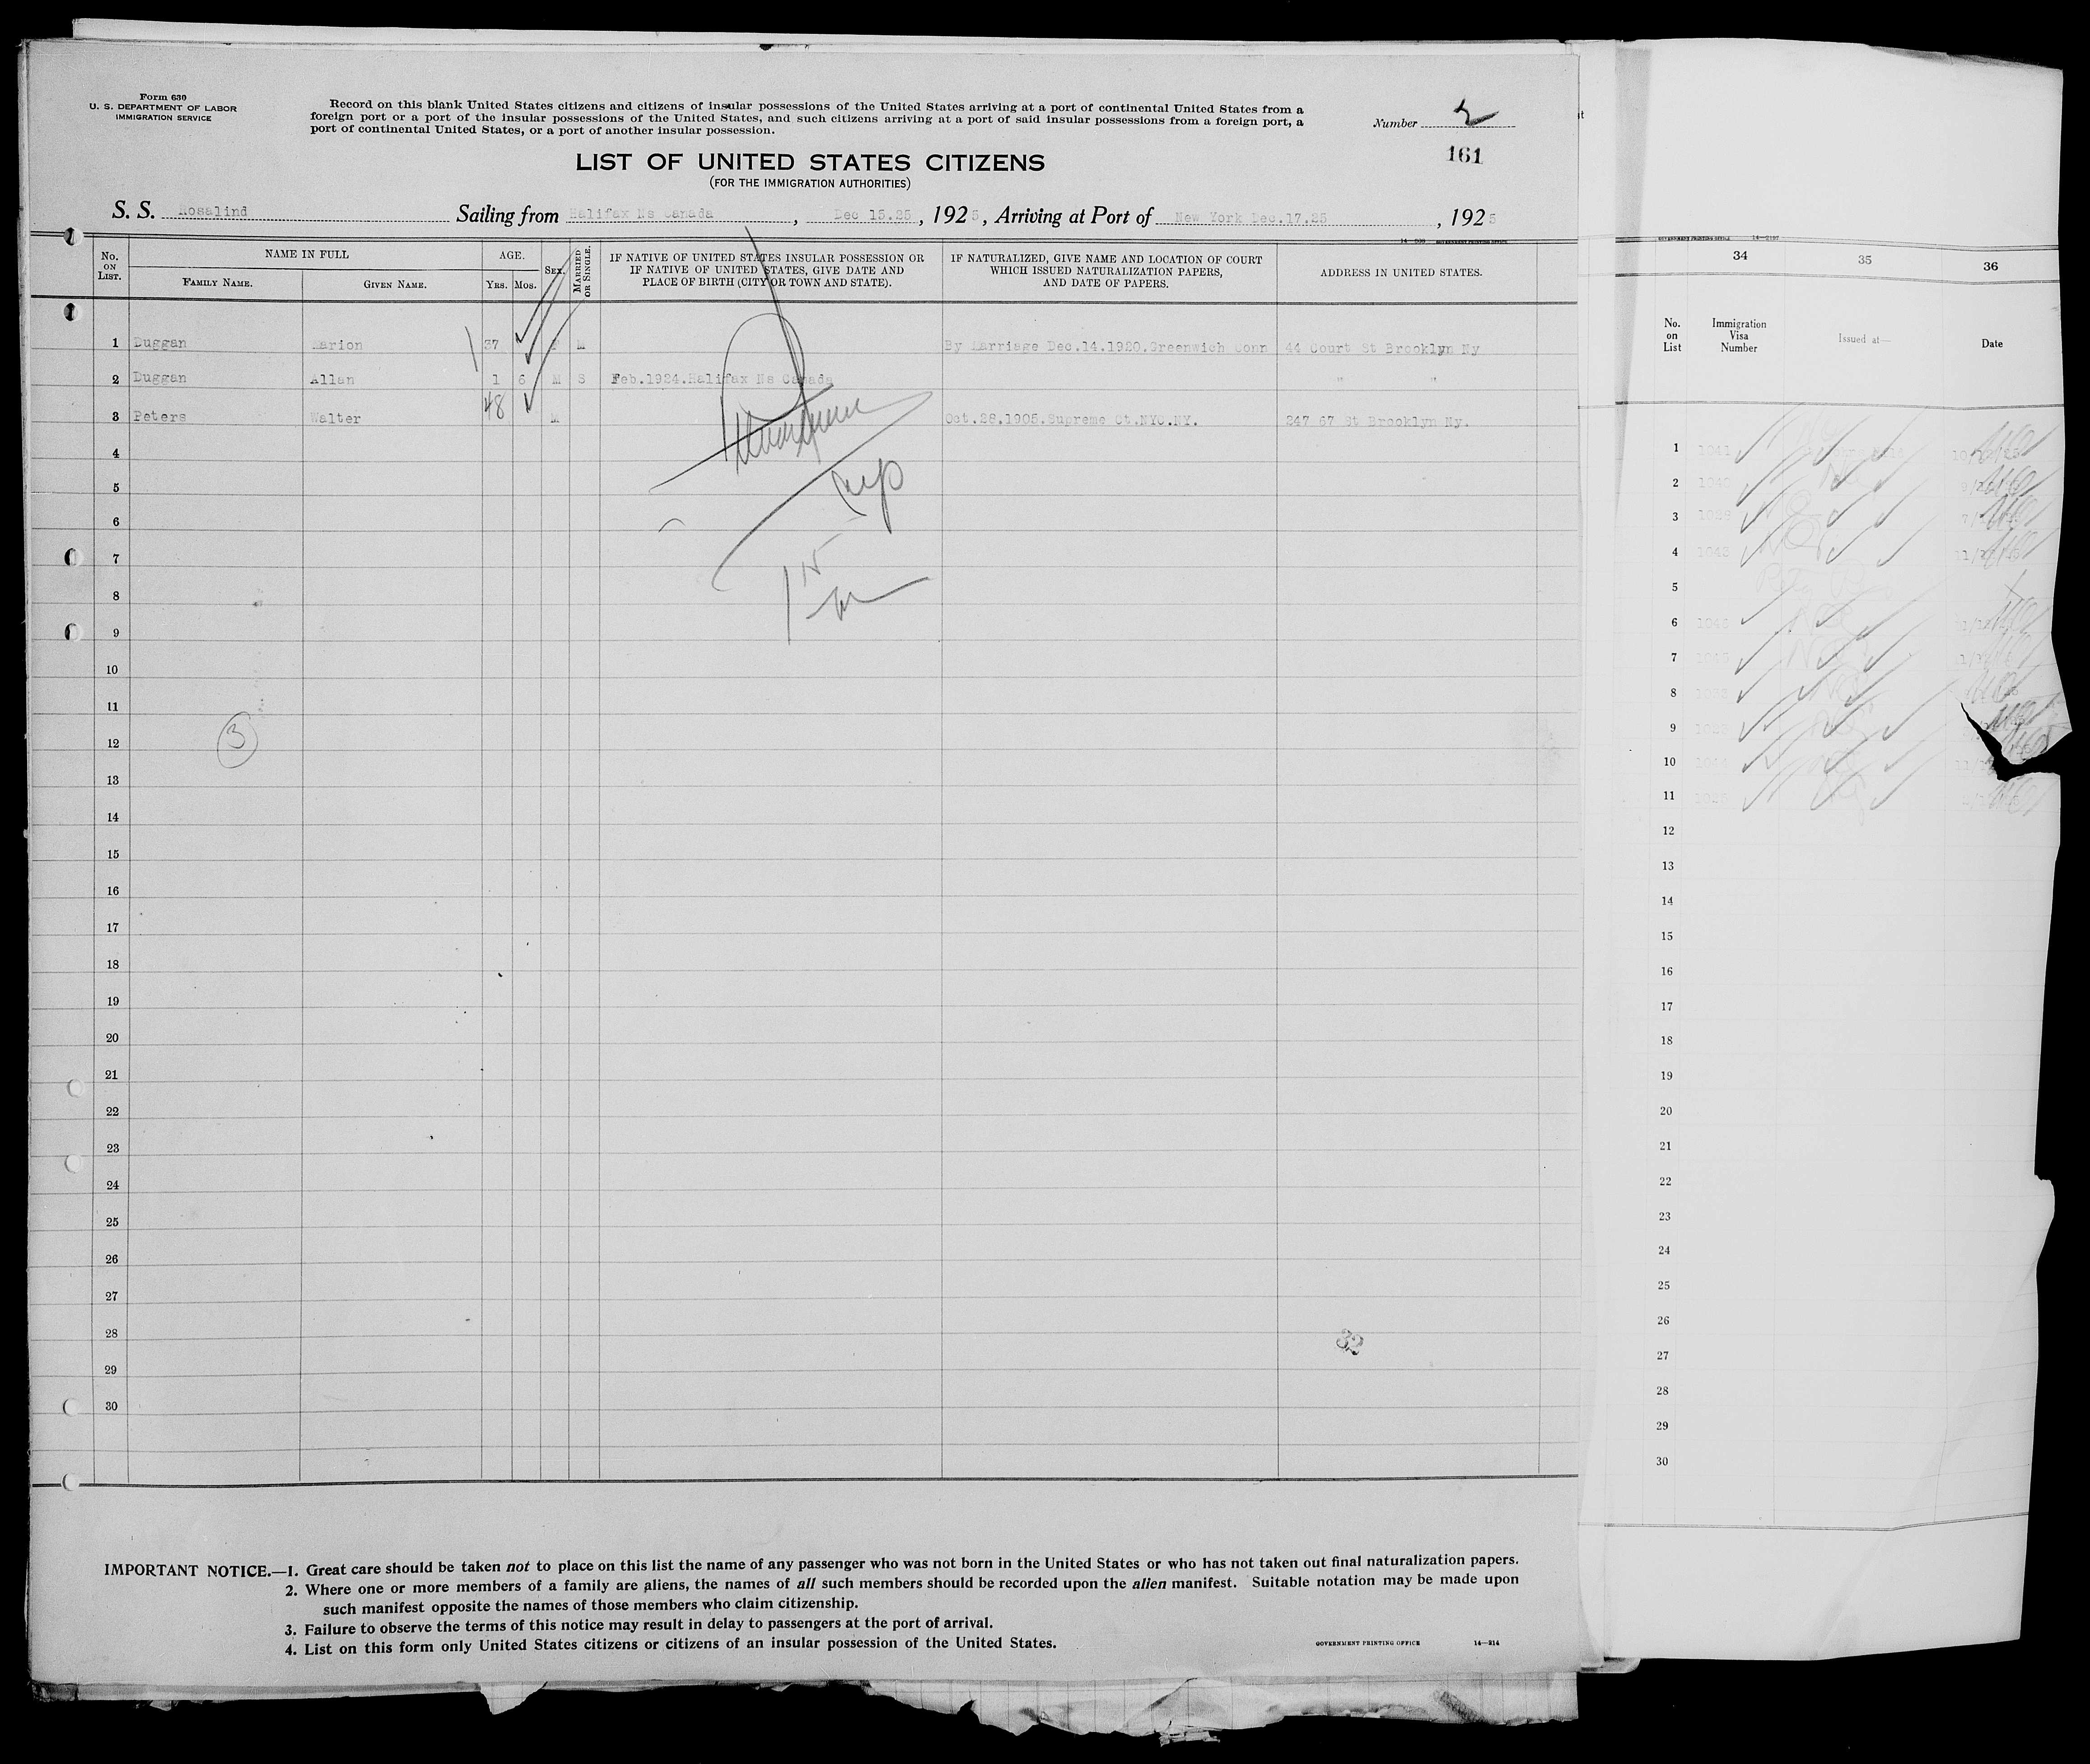 Form 630
U. S. DEPARTMENT OF LABOR
IMMIGRATION SERVICE
Record on this blank United States citizens and citizens of insular possessions of the United States arriving at a port of continental United States from a
foreign port or a port of the insular possessions of the United States, and such citizens arriving at a port of said insular possessions from a foreign port, a
port of continental United States, or a port of another insular possession.
Number 2
161
LIST OF UNITED STATES CITIZENS
(FOR THE IMMIGRATION AUTHORITIES)
S. S. Rosalind Sailing from Halifax Ns Canada, Dec 15.25, 1925, Arriving at Port of New York Dec.17.25, 1925
No. ON LIST. NAME IN FULL FAMILY NAME. GIVEN NAME. AGE. YRS. MOS. SEX. MARRIED OR SINGLE. IF NATIVE OF UNITED STATES INSULAR POSSESSION OR IF NATIVE OF UNITED STATES, GIVE DATE AND PLACE OF BIRTH (CITY OR TOWN AND STATE). IF NATURALIZED, GIVE NAME AND LOCATION OF COURT WHICH ISSUED NATURALIZATION PAPERS, AND DATE OF PAPERS. ADDRESS IN UNITED STATES.
1 Duggan Marion 37 F M By Marriage Dec.14.1920.Greenwich Conn 44 Court St Brooklyn Ny
2 Duggan Allan 1 6 M S Feb.1924.Halifax Ns Canada " "
3 Peters Walter 48 M Oct.28.1905.Supreme Ct.NYC.NY. 247 67 St Brooklyn Ny.
4
5
6
7
8
9
10
11
12
3
13
14
15
16
17
18
19
20
21
22
23
24
25
26
27
28
32
29
30
IMPORTANT NOTICE.—1. Great care should be taken not to place on this list the name of any passenger who was not born in the United States or who has not taken out final naturalization papers.
2. Where one or more members of a family are aliens, the names of all such members should be recorded upon the alien manifest. Suitable notation may be made upon
such manifest opposite the names of those members who claim citizenship.
3. Failure to observe the terms of this notice may result in delay to passengers at the port of arrival.
4. List on this form only United States citizens or citizens of an insular possession of the United States.
GOVERNMENT PRINTING OFFICE 14—214
34 35 36
No. on List Immigration Visa Number Issued at— Date
1
2
3
4
5
6
7
8
9
10
11
12
13
14
15
16
17
18
19
20
21
22
23
24
25
26
27
28
29
30